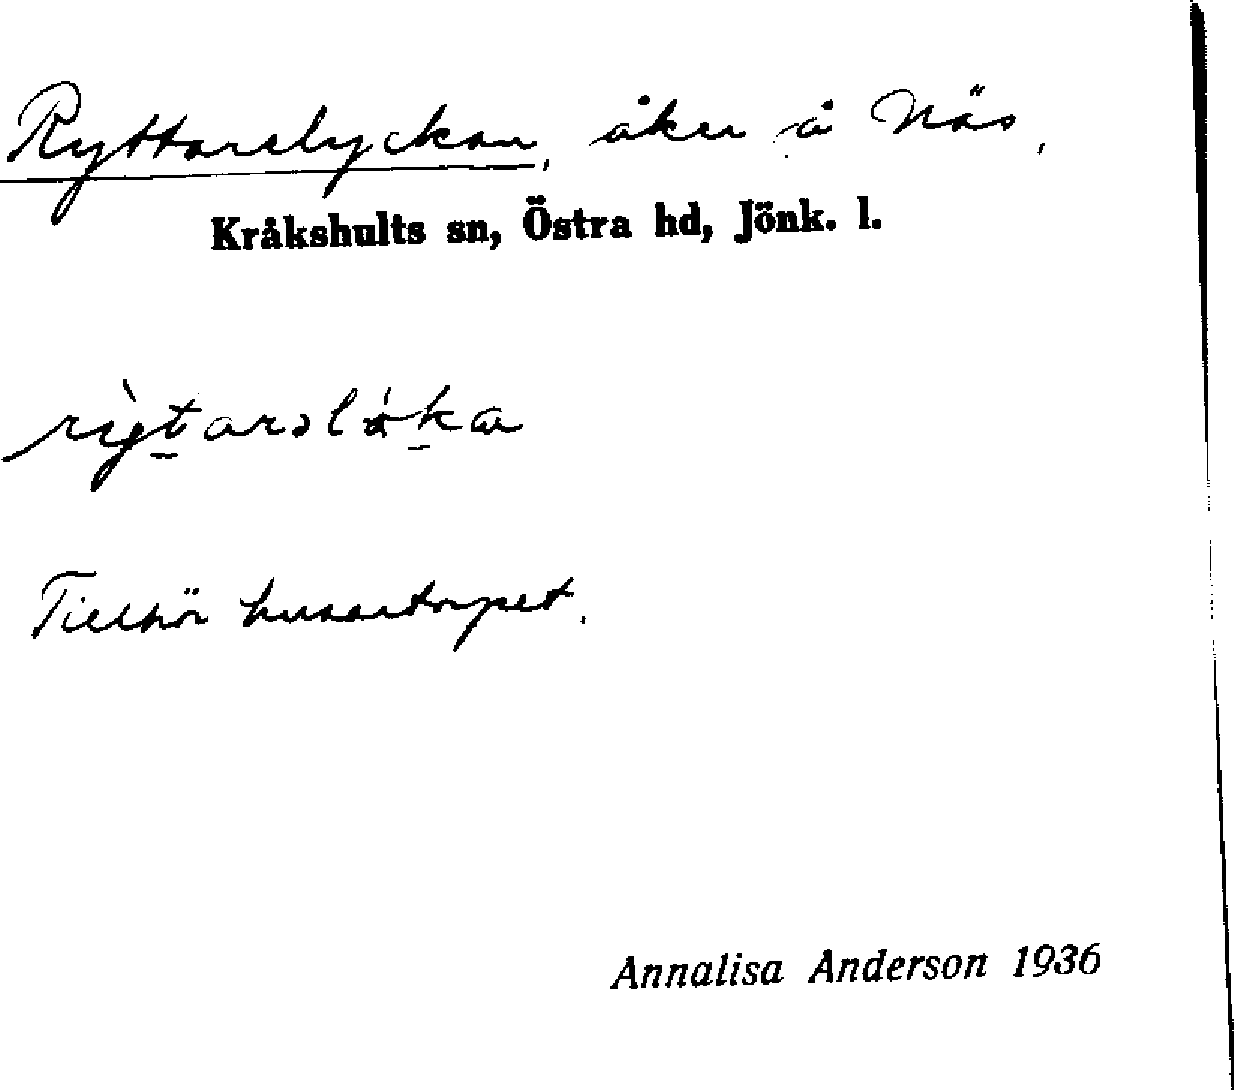 Ryttarelyckan, åker å Näs,
Kråkshults sn, Östra hd, Jönk. l.
Tillhör husartorpet.
Annalisa Anderson 1936